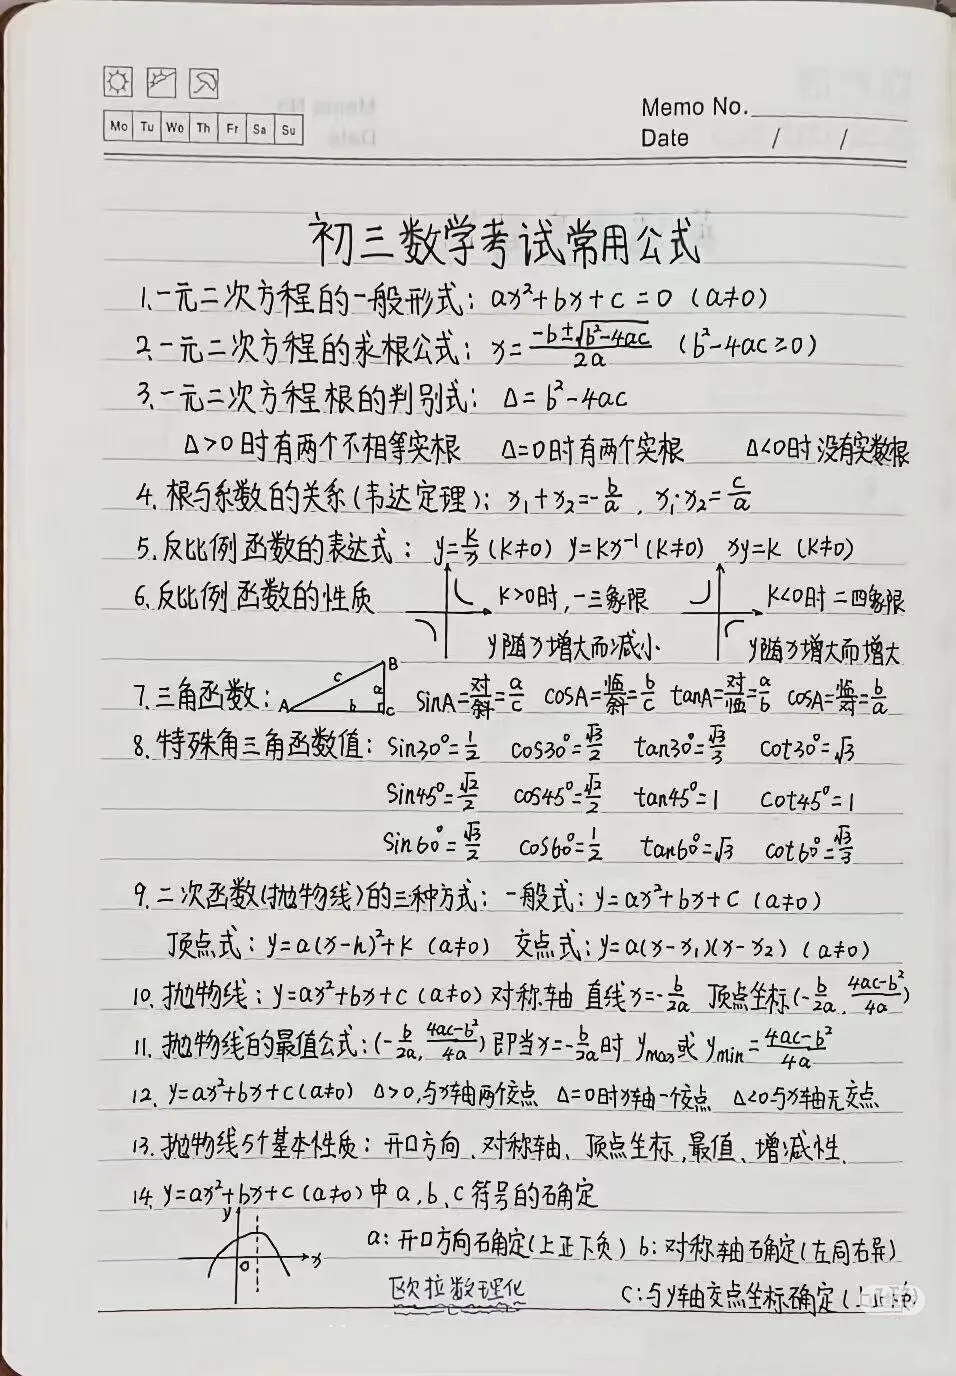 Memo No.
Mo Tu We Th Fr Sa Su
Date / /
初三数学考试常用公式
1.一元二次方程的一般形式: ax²+bx+c=0 (a≠0)
2.一元二次方程的求根公式: x=(-b±√(b²-4ac))/2a (b²-4ac≥0)
3.一元二次方程根的判别式: Δ=b²-4ac
Δ>0时有两个不相等实根 Δ=0时有两个实根 Δ<0时没有实数根
4.根与系数的关系(韦达定理): x₁+x₂=-b/a , x₁·x₂=c/a
5.反比例函数的表达式: y=k/x (k≠0) y=kx⁻¹ (k≠0) xy=k (k≠0)
6.反比例函数的性质 k>0时,一三象限 k<0时二四象限
y随x增大而减小 y随x增大而增大
7.三角函数: A B C a b c sinA=对/斜=a/c cosA=临/斜=b/c tanA=对/临=a/b cosA=临/对=b/a
8.特殊角三角函数值: sin30°=1/2 cos30°=√3/2 tan30°=√3/3 cot30°=√3
sin45°=√2/2 cos45°=√2/2 tan45°=1 cot45°=1
sin60°=√3/2 cos60°=1/2 tan60°=√3 cot60°=√3/3
9.二次函数(抛物线)的三种方式: 一般式: y=ax²+bx+c (a≠0)
顶点式: y=a(x-h)²+k (a≠0) 交点式: y=a(x-x₁)(x-x₂) (a≠0)
10.抛物线: y=ax²+bx+c (a≠0) 对称轴 直线x=-b/2a 顶点坐标(-b/2a, (4ac-b²)/4a)
11.抛物线的最值公式: (-b/2a, (4ac-b²)/4a) 即当x=-b/2a时 ymax或ymin=(4ac-b²)/4a
12. y=ax²+bx+c (a≠0) Δ>0,与x轴两个交点 Δ=0时x轴一个交点 Δ<0与x轴无交点
13.抛物线5个基本性质: 开口方向、对称轴、顶点坐标,最值、增减性、
14. y=ax²+bx+c (a≠0)中a、b、c符号的确定
y x o
a: 开口方向确定(上正下负) b: 对称轴确定(左同右异)
欧拉数理化 c: 与y轴交点坐标确定(上正